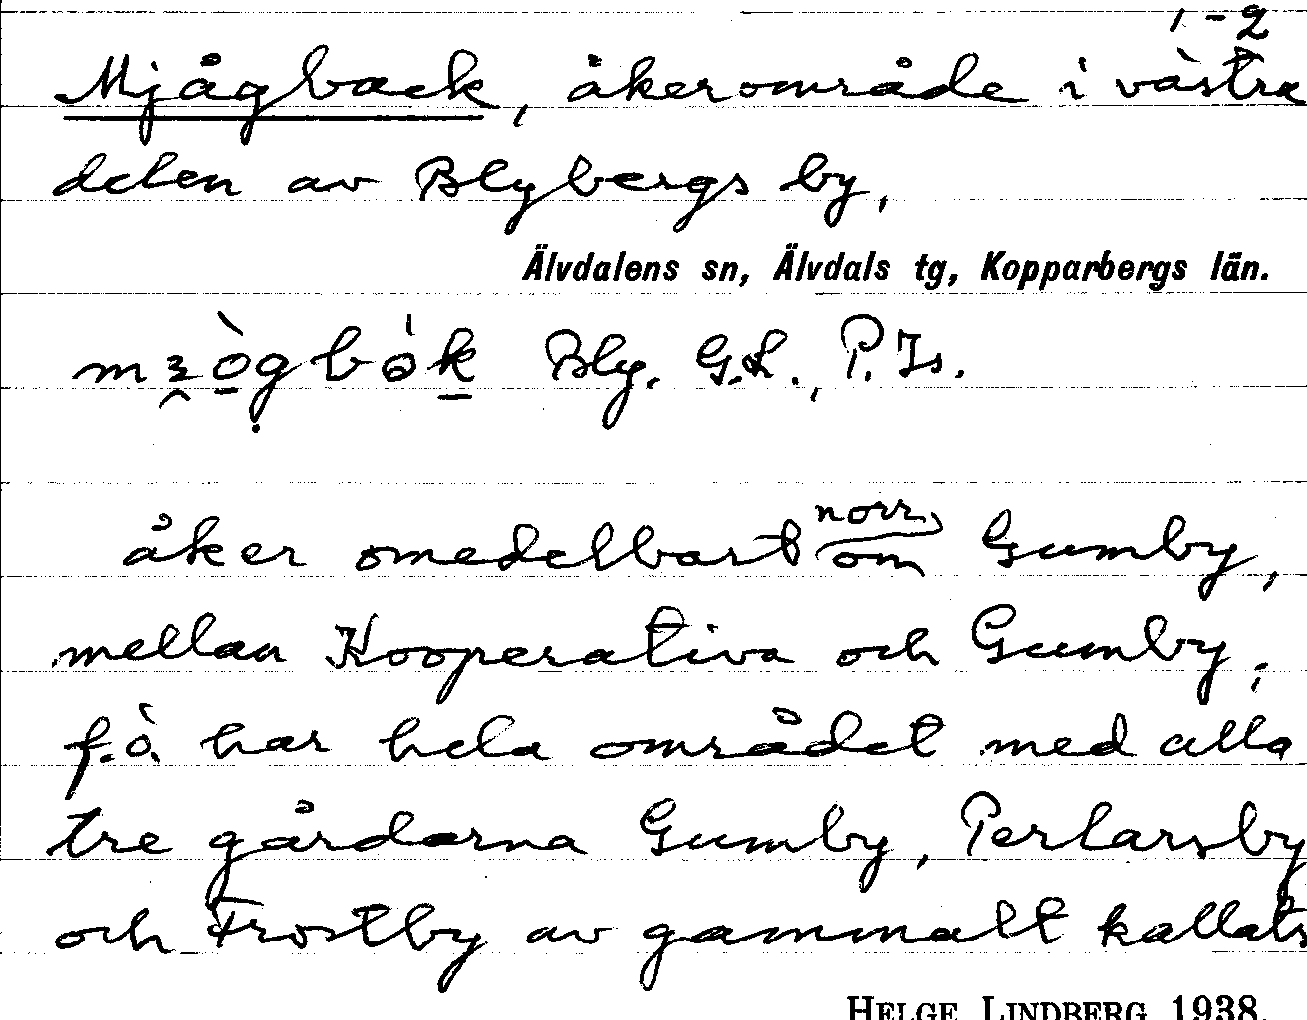 1-2
Mjågback, åkerområde i västra
delen av Blybergs by,
Älvdalens sn, Älvdals tg, Kopparbergs län.
Bly. G.L., P.Js.
åker omedelbart norr
om Gumby,
mellan Kooperativa och Gumby;
f.ö. har hela området med alla
tre gårdarna Gumby, Perlarsby
och Frostby av gammalt kallats
HELGE LINDBERG 1938.